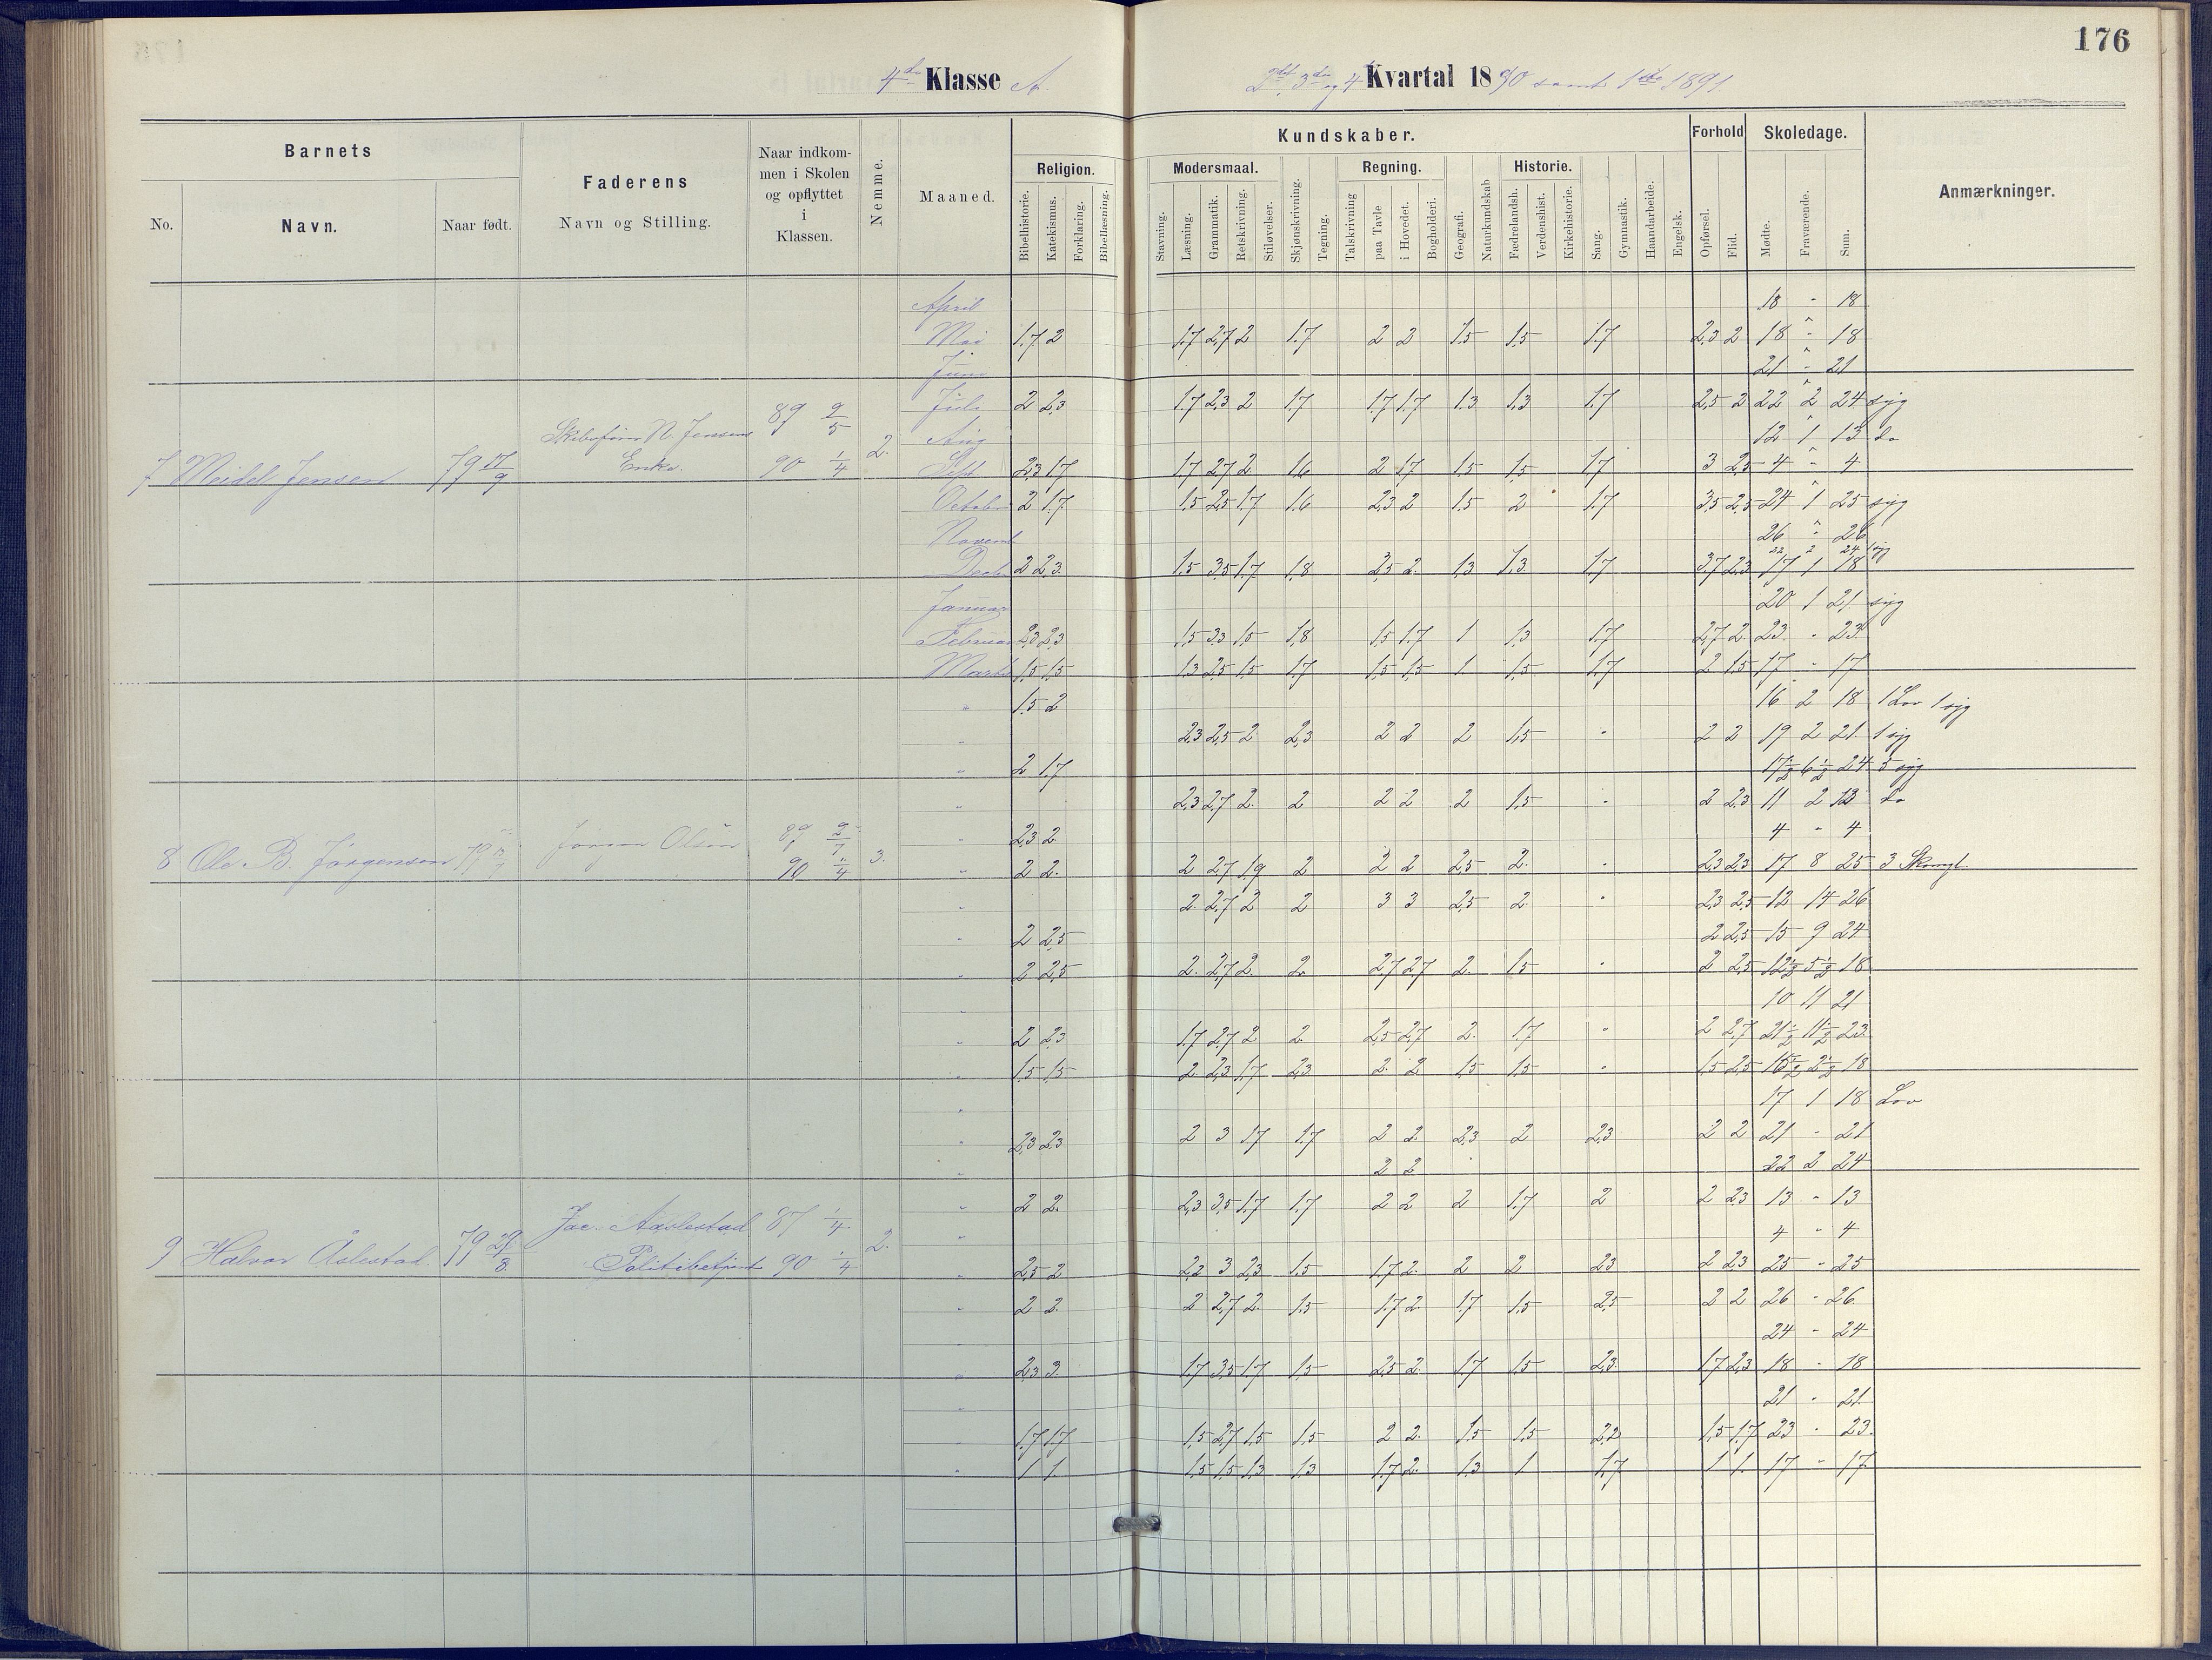 176
4de Klasse A.
2det, 3die og 4de Kvartal 1890 samt 1ste 1891.
Barnets
No.
Navn.
Naar født.
Faderens
Navn og Stilling.
Naar indkom-
men i Skolen
og opflyttet
i
Klassen.
Nemme.
Maaned.
Kundskaber.
Religion.
Bibelhistorie.
Katekismus.
Forklaring.
Bibellæsning.
Modersmaal.
Stavning.
Læsning.
Grammatik.
Retskrivning.
Stiløvelser.
Skjønskrivning.
Tegning.
Regning.
Talskrivning
paa Tavle
i Hovedet.
Bogholderi.
Geografi.
Naturkundskab
Historie.
Fædrelandsh.
Verdenshist.
Kirkehistorie.
Sang.
Gymnastik.
Haandarbeide.
Engelsk.
Forhold
Opførsel.
Flid.
Skoledage.
Mødte.
Fraværende.
Sum.
Anmærkninger.
April 18 - 18
Mai 1.7 2 1.7 2.7 2 1.7 2 2 1.5 1.5 1.7 2.3 2 18 - 18
Juni 21 - 21
Juli 2 2.3 1.7 2.3 2 1.7 1.7 1.7 1.3 1.3 1.7 2.5 2 22 2 24 syg
Aug 12 1 13 do
7 Meidel Jensen 79 17/9 Skibsfører N. Jensens Enke. 89 2/5 90 1/4 2.
Sept. 2.3 1.7 1.7 2.7 2 1.6 2 1.7 1.5 1.5 1.7 3 2.5 4 - 4
October 2 1.7 1.5 2.5 1.7 1.6 2.3 2 1.5 2 1.7 3.5 2.5 24 1 25 syg
Novemb 26 - 26
22 2 24 1 syg
Decbr 2 2.3 1.5 3.5 1.7 1.8 2.5 2 1.3 1.3 1.7 3.7 2.3 17 1 18
Januar 20 1 21 syg
Februar 2.3 2.3 1.5 3.3 1.5 1.8 1.5 1.7 1 1.3 1.7 2.7 2 23 - 23
Marts 1.5 1.5 1.3 2.5 1.5 1.7 1.5 1.5 1 1.5 1.7 2 1.5 17 - 17
" 1.5 2 16 2 18 1 Lov 1 syg
" 2.3 2.5 2 2.3 2 2 2 1.5 - 2 2 19 2 21 1 syg
" 2 1.7 17½ 6½ 24 5 syg
" 2.3 2.7 2 2 2 2 2 1.5 - 2 2.3 11 2 13 do
" 2.3 2 4 - 4
8 Ole B. Jörgensen 79 Jörgen Olsen 90 1/4 3.
" 2 2 2 2.7 1.9 2 2 2 2.5 2 - 2.3 2.3 17 8 25 3
" 2 2.7 2 2 3 3 2.5 2 - 2.3 2.5 12 14 26
" 2 2.5 2 2.5 15 9 24
" 2 2.5 2 2.7 2 2 2.7 2.7 2 1.5 - 2 2.5 12½ 5½ 18
" 10 11 21
" 2 2.3 1.7 2.7 2 2 2.5 2.7 2 1.7 - 2 2.7 21½ 1½ 23
" 1.5 1.5 2 2.3 1.7 2.3 2 2 1.5 1.5 - 1.5 2.5 15½ 2½ 18
" 17 1 18 Lov
" 2.3 2.3 2 3 1.7 1.7 2 2 2.3 2 2.3 2 2 21 - 21
" 2 2 22 2 24
" 2 2 2.3 3.5 1.7 1.7 2 2 2 1.7 2 2 2.3 13 - 13
" 4 - 4
9 Halvor Åslestad. 79 29/8 Jac. Aaslestad Politibetjent 87 1/4 90 1/4 2.
" 2.5 2 2.2 3 2.3 1.5 1.7 2 2 2 2.3 2 2.3 25 - 25
" 2 2 2 2.7 2 1.5 1.7 2 1.7 1.5 2.5 2 2 26 - 26
24 - 24
" 2.3 3 1.7 3.5 1.7 1.5 2.5 2 1.7 1.5 2.3 1.7 2.3 18 - 18
" 21 - 21
" 1.7 1.7 1.5 2.7 1.5 1.5 2 2 1.5 1.5 2.2 1.5 1.7 23 - 23
" 1 1 1.5 1.5 1.3 1.3 1.7 2 1.3 1 1.7 1 1 17 - 17